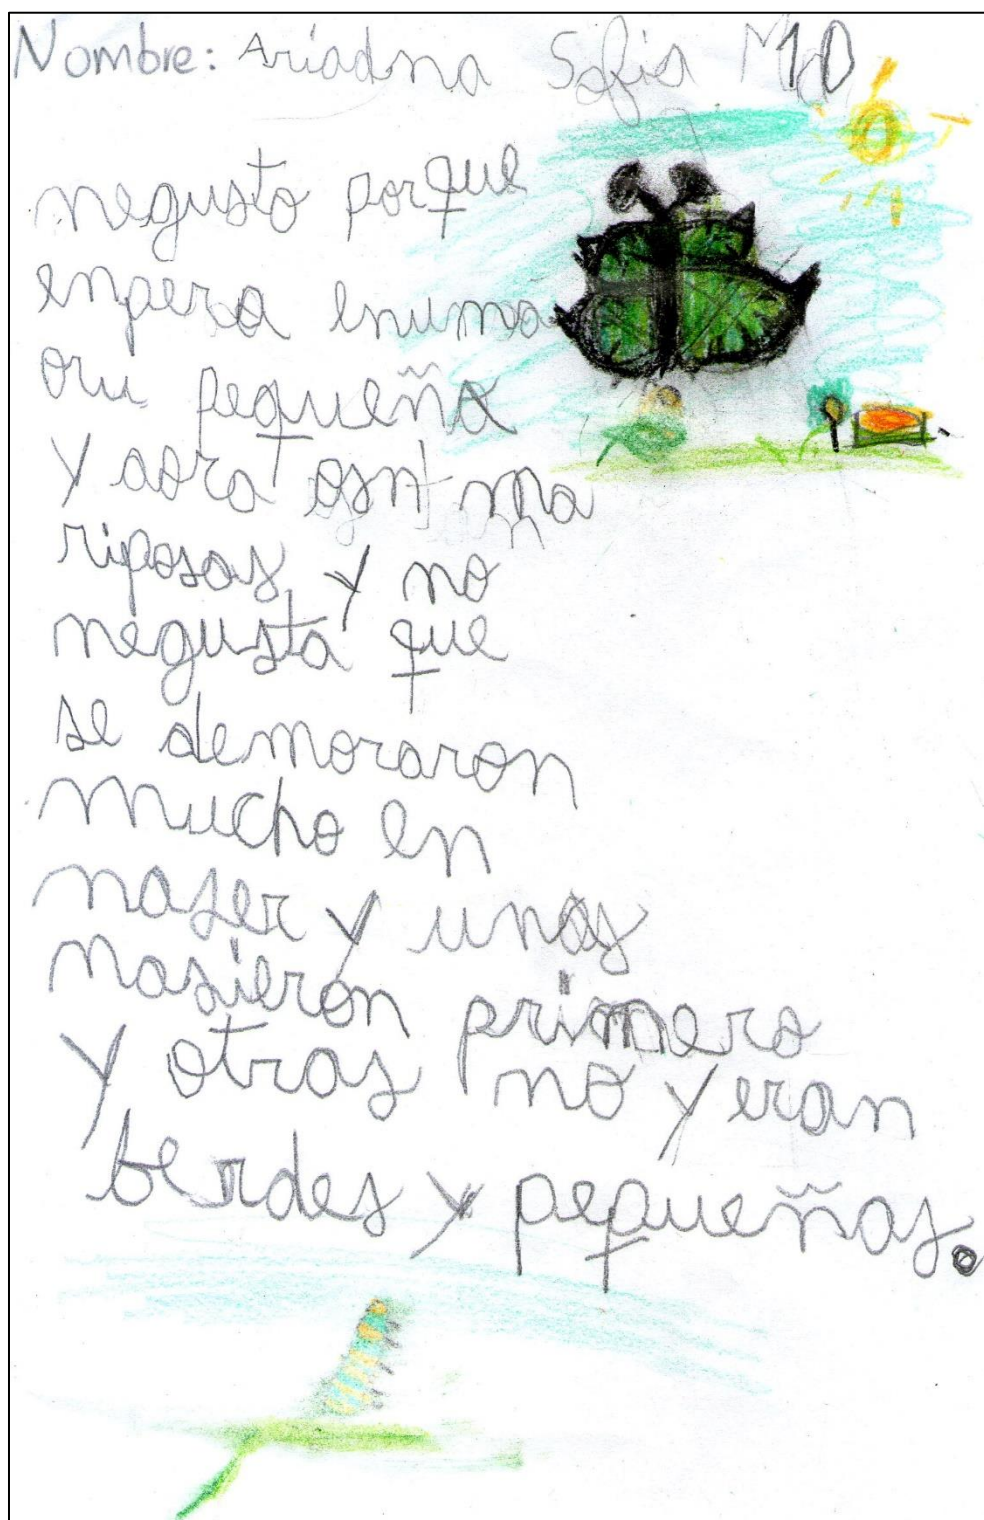 Nombre: Ariadna Sofia
negusto porque
enpera
pequeña
y aora ma
riposas y no
negusta que
se demoraron
mucho en
naser y unas
nasieron primero
y otras no y eran
berdes y pequeñas.